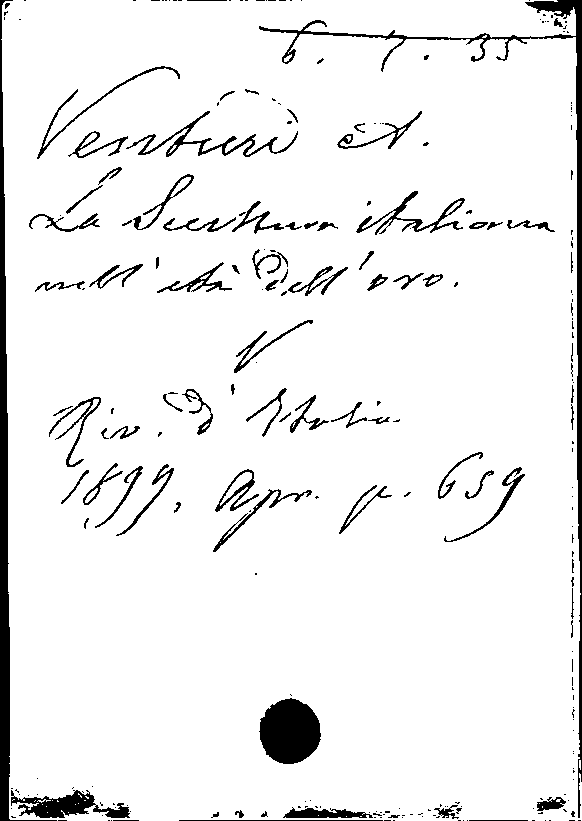 6. 7. 35
Venturi A.
La Scultura italiana
nell' età dell' oro.
V
Riv. d' Italia
1899, Apr. p. 659